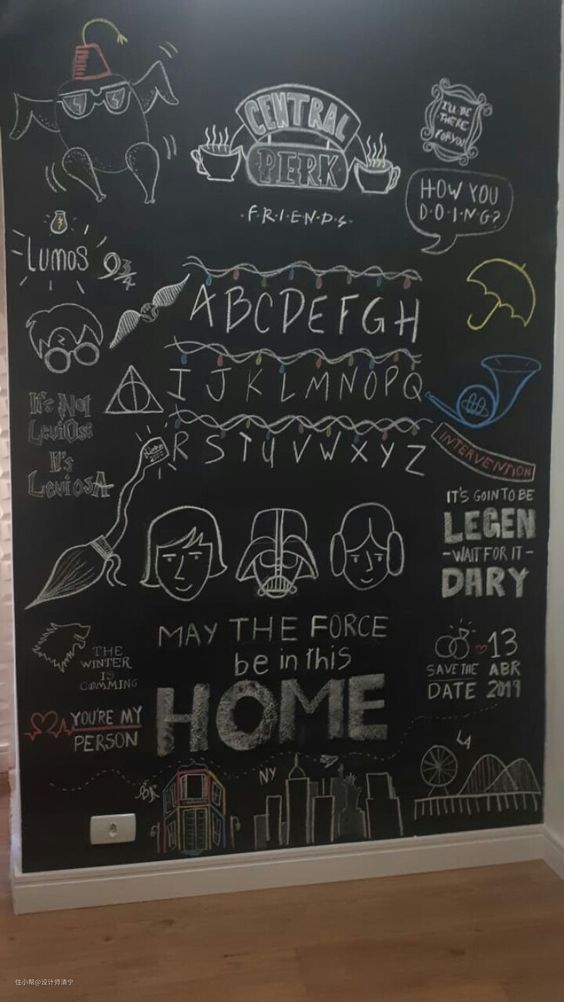 CENTRAL
PERK
·F·R·I·E·N·D·S·
I'LL BE
THERE
FOR YOU
HOW YOU
D·O·I·N·G?
LUMOS
9¾
ABCDEFGH
IJKLMNOPQ
RSTUVWXYZ
It's Not
LeviOsa
It's
LeviosA
INTERVENTION
IT'S GOIN TO BE
LEGEN
-WAIT FOR IT-
DARY
MAY THE FORCE
be in this
HOME
THE
WINTER
IS
COMMING
YOU'RE MY
PERSON
13
SAVE THE ABR
DATE 2019
NY
住小帮@设计师清宁